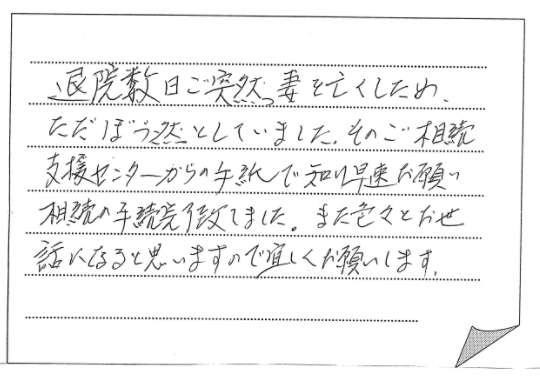 退院数日ご突然、妻を亡くしため、
ただぼう然としていました。そのご相続
支援センターからの手紙で知り早速お願い
相続の手続完了致しました。また色々とお世
話になると思いますので宜しくお願いします。